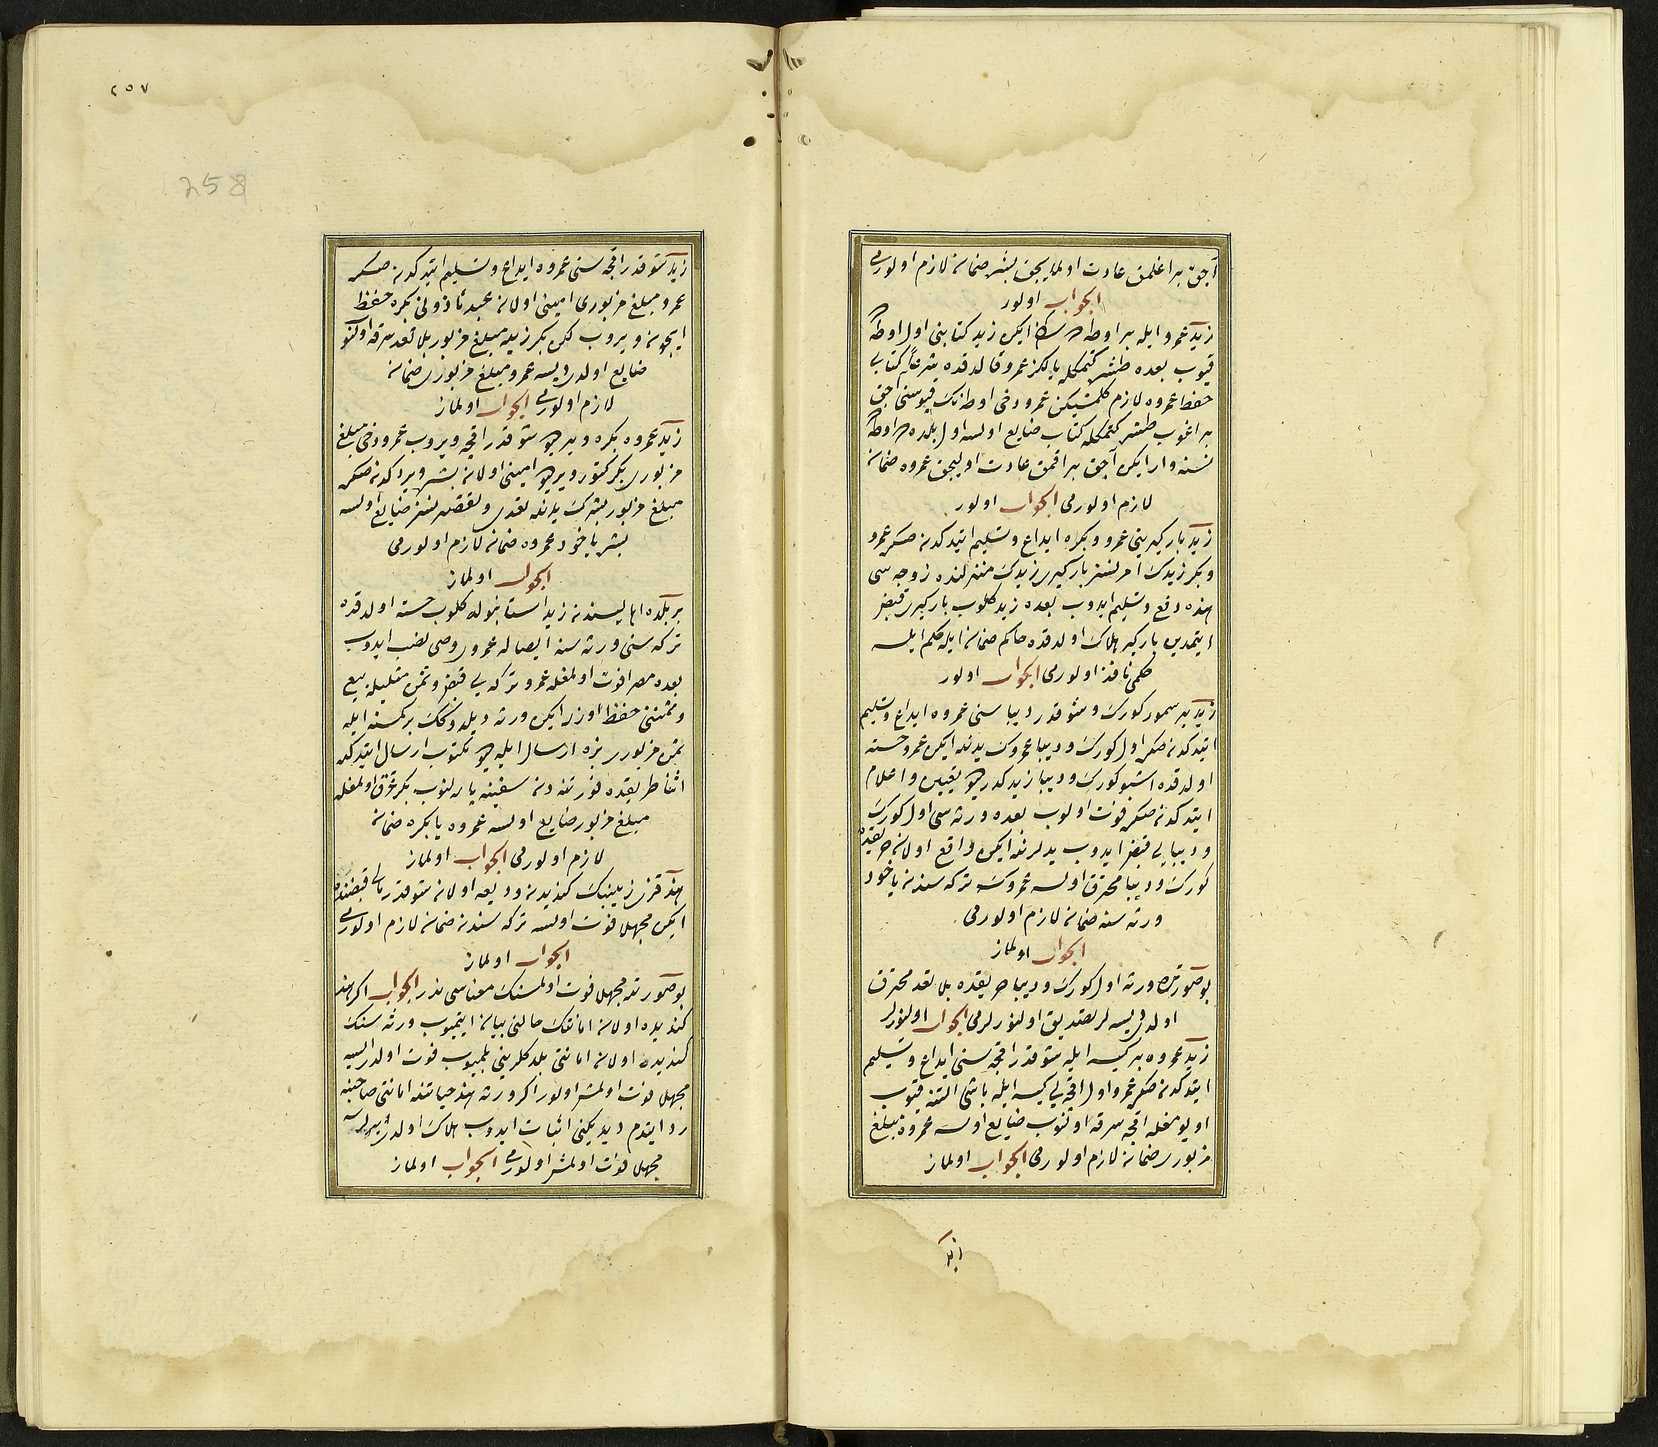 آچق براغلمق عادت اولمایجق بشره ضمان لازم اولورمی
الجواب اولور
زید عمرو ایله بر اوطه ده ساکن ایکن زید کتابنی اول اوطه ده
قیوب بعده طشره کتمکله یالکز عمرو قالدقده شرعا کتابی
حفظ عمروه لازم کلمشیکن عمرو دخی اوطه نک قپوسنی آچق
براغوب طشره کتمکله کتاب ضایع اولسه اول بلده ده اوطه ده
نسنه وار ایکن آچق براقمق عادت اولمیجق عمروه ضمان
لازم اولورمی الجواب اولور
زید بارکیرینی عمرو و بکره ایداع و تسلیم ایتدکدنصکره عمرو
و بکر زیدک امرنسز بارکیری زیدک منزلنده زوجه سی
هنده دفع و تسلیم ایدوب بعده زید کلوب بارکیری قبض
ایتمدین بارکیر هلاک اولدقده حاکم ضمان ایله حکم ایلسه
حکمی نافذ اولورمی الجواب اولور
زید بر سمور کورک و شو قدر دیباسنی عمروه ایداع و تسلیم
ایتدکدنصکره اول کورک و دیبا عمروک یدنده ایکن عمرو خسته
اولدقده اشبو کورک و دیبا زیدکدر دیو تعیین و اعلام
ایتدکدنصکره فوت اولوب بعده ورثه سی اول کورک
و دیبایی قبض ایدوب یدلرنده ایکن واقع اولان حریقده
کورک و دیبا محترق اولسه عمروک ترکه سندن یاخود
ورثه سنه ضمان لازم اولورمی
الجواب اولماز
بوصورتده ورثه اول کورک و دیبا حریقده بلا تعد محترق
اولدی دیسه لر تصدیق اولنورلرمی الجواب اولنورلر
زید عمروه بر کیسه ایله شو قدر اقچه سنی ایداع و تسلیم
ایتدکدنصکره عمرو اول اقچه یی کیسه ایله باشی التنه قیوب
اویومغله اقچه سرقه اولنوب ضایع اولسه عمروه مبلغ
مزبوری ضمان لازم اولورمی الجواب اولماز
زید
٢٥٧
258
زید شو قدر اقچه سنی عمروه ایداع و تسلیم ایتدکدنصکره
عمرو مبلغ مزبوری امینی اولان عبد مأذونی بکره حفظ
ایچون ویروب لکن بکر زیده مبلغ مزبور بلا تعد سرقه اولنوب
ضایع اولدی دیسه عمرو مبلغ مزبوری ضمان
لازم اولورمی الجواب اولماز
زید عمروه بکره ویر دیو شو قدر اقچه ویروب عمرو دخی مبلغ
مزبوری بکره کتور ویر دیو امینی اولان بشره ویردکدنصکره
مبلغ مزبور بشرک یدنده تعدی و تقصیرنسز ضایع اولسه
بشره یاخود عمروه ضمان لازم اولورمی
الجواب اولماز
بر بلده اهالیسندن زید استانبوله کلوب خسته اولدقده
ترکه سنی ورثه سنه ایصاله عمروی وصی نصب ایدوب
بعده مصرا فوت اولمغله عمرو ترکه یی قبض و ثمن مثلیله بیع
و ثمننی حفظ اوزره ایکن ورثه دیلدوککک برکمسنه ایله
ثمن مزبوری بزه ارسال ایله دیو مکتوب ارسال ایتدکده
اثنا طریقده فورتنه دن سفینه پاره لنوب بکر غرق اولمغله
مبلغ مزبور ضایع اولسه عمروه یا بکره ضمان
لازم اولورمی الجواب اولماز
هند قزی زینبک کندیدن ودیعه اولان شو قدر مالی قبضنده
ایکن مجهلا فوت اولسه ترکه سندن ضمان لازم اولورمی
الجواب اولماز
بوصورتده مجهلا فوت اولمسنک معناسی ندر الجواب اکر هند
کندیده اولان امانتک حالنی بیان ایتمیوب ورثه سنک
کندیده اولان امانتی بلدکلرینی بلمیوب فوت اولدیسه
مجهلا فوت اولمش اولور اکر ورثه هند حیاتنده امانتی صاحبنه
رد ایتدم دیدیکنی اثبات ایدوب هلاک اولدی دیرلرسه
مجهلا فوت اولمش اولورمی الجواب اولماز